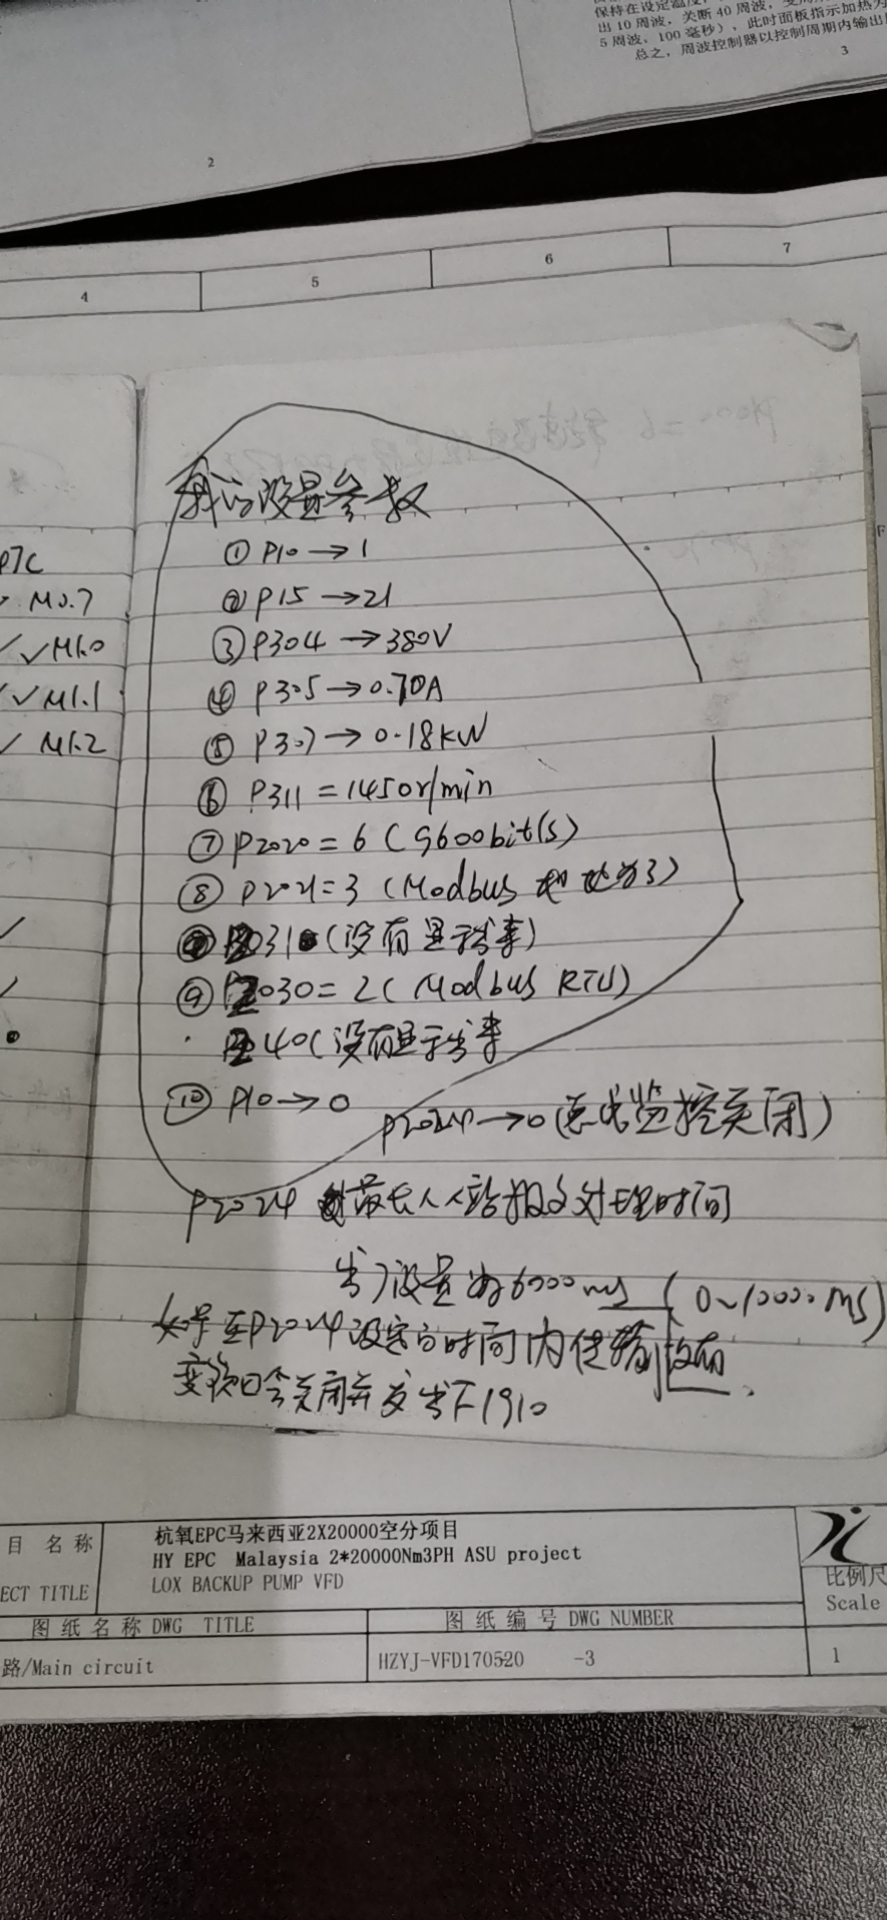 保持在设定温度,
出 10 周波,关断 40 周波,
5 周波、100 毫秒),此时面板指示加热为
总之,周波控制器以控制周期内输出
3
2
4
5
6
7
我的设置参数
① P10 → 1
② P15 → 21
③ P304 → 380V
④ P305 → 0.70A
⑤ P307 → 0.18KW
⑥ P311 = 1450r/min
⑦ P2020 = 6 (9600bit/s)
⑧ P2021 = 3 (Modbus 地址为3)
2031 (没有显示出来)
⑨ 2030 = 2 (Modbus RTU)
40 (没有显示出来
⑩ P10 → 0
P2024 → 0 (总线监控关闭)
P2024 最长从站报文处理时间
出厂设置为6000ms (0~10000ms)
如果在P2024设定的时间内传输没有
变频器会关闭并发出F1910
PTC
M0.7
✓ M1.0
✓ M1.1
✓ M1.2
目 名 称
ECT TITLE
杭氧EPC马来西亚2X20000空分项目
HY EPC Malaysia 2*20000Nm3PH ASU project
LOX BACKUP PUMP VFD
图 纸 名 称 DWG TITLE
图 纸 编 号 DWG NUMBER
比例尺
Scale
路/Main circuit
HZYJ-VFD170520 -3
1